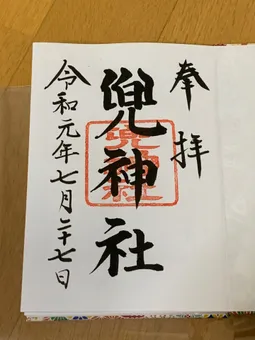 奉拝
兜神社
令和元年七月二十七日
兜神社